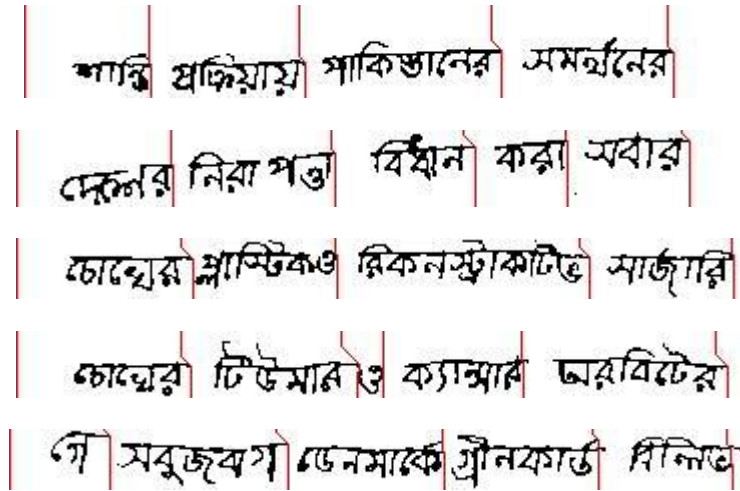 শান্তি প্রক্রিয়ায় পাকিস্তানের সমর্থনের
দেশের নিরাপত্তা বিধান করা সবার
চোখের প্লাস্টিকও রিকনস্ট্রাকটিভ সার্জারি
চোখের টিউমার ও ক্যান্সার অরবিটের
গে সবুজবাগ ডেনমার্কে গ্রীনকার্ড বিলিভ